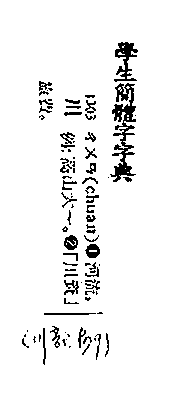 學生簡體字字典
1203 ㄔㄨㄢ(chuan)❶河流。
川 例:高山大~。❷「川資」
旅費。